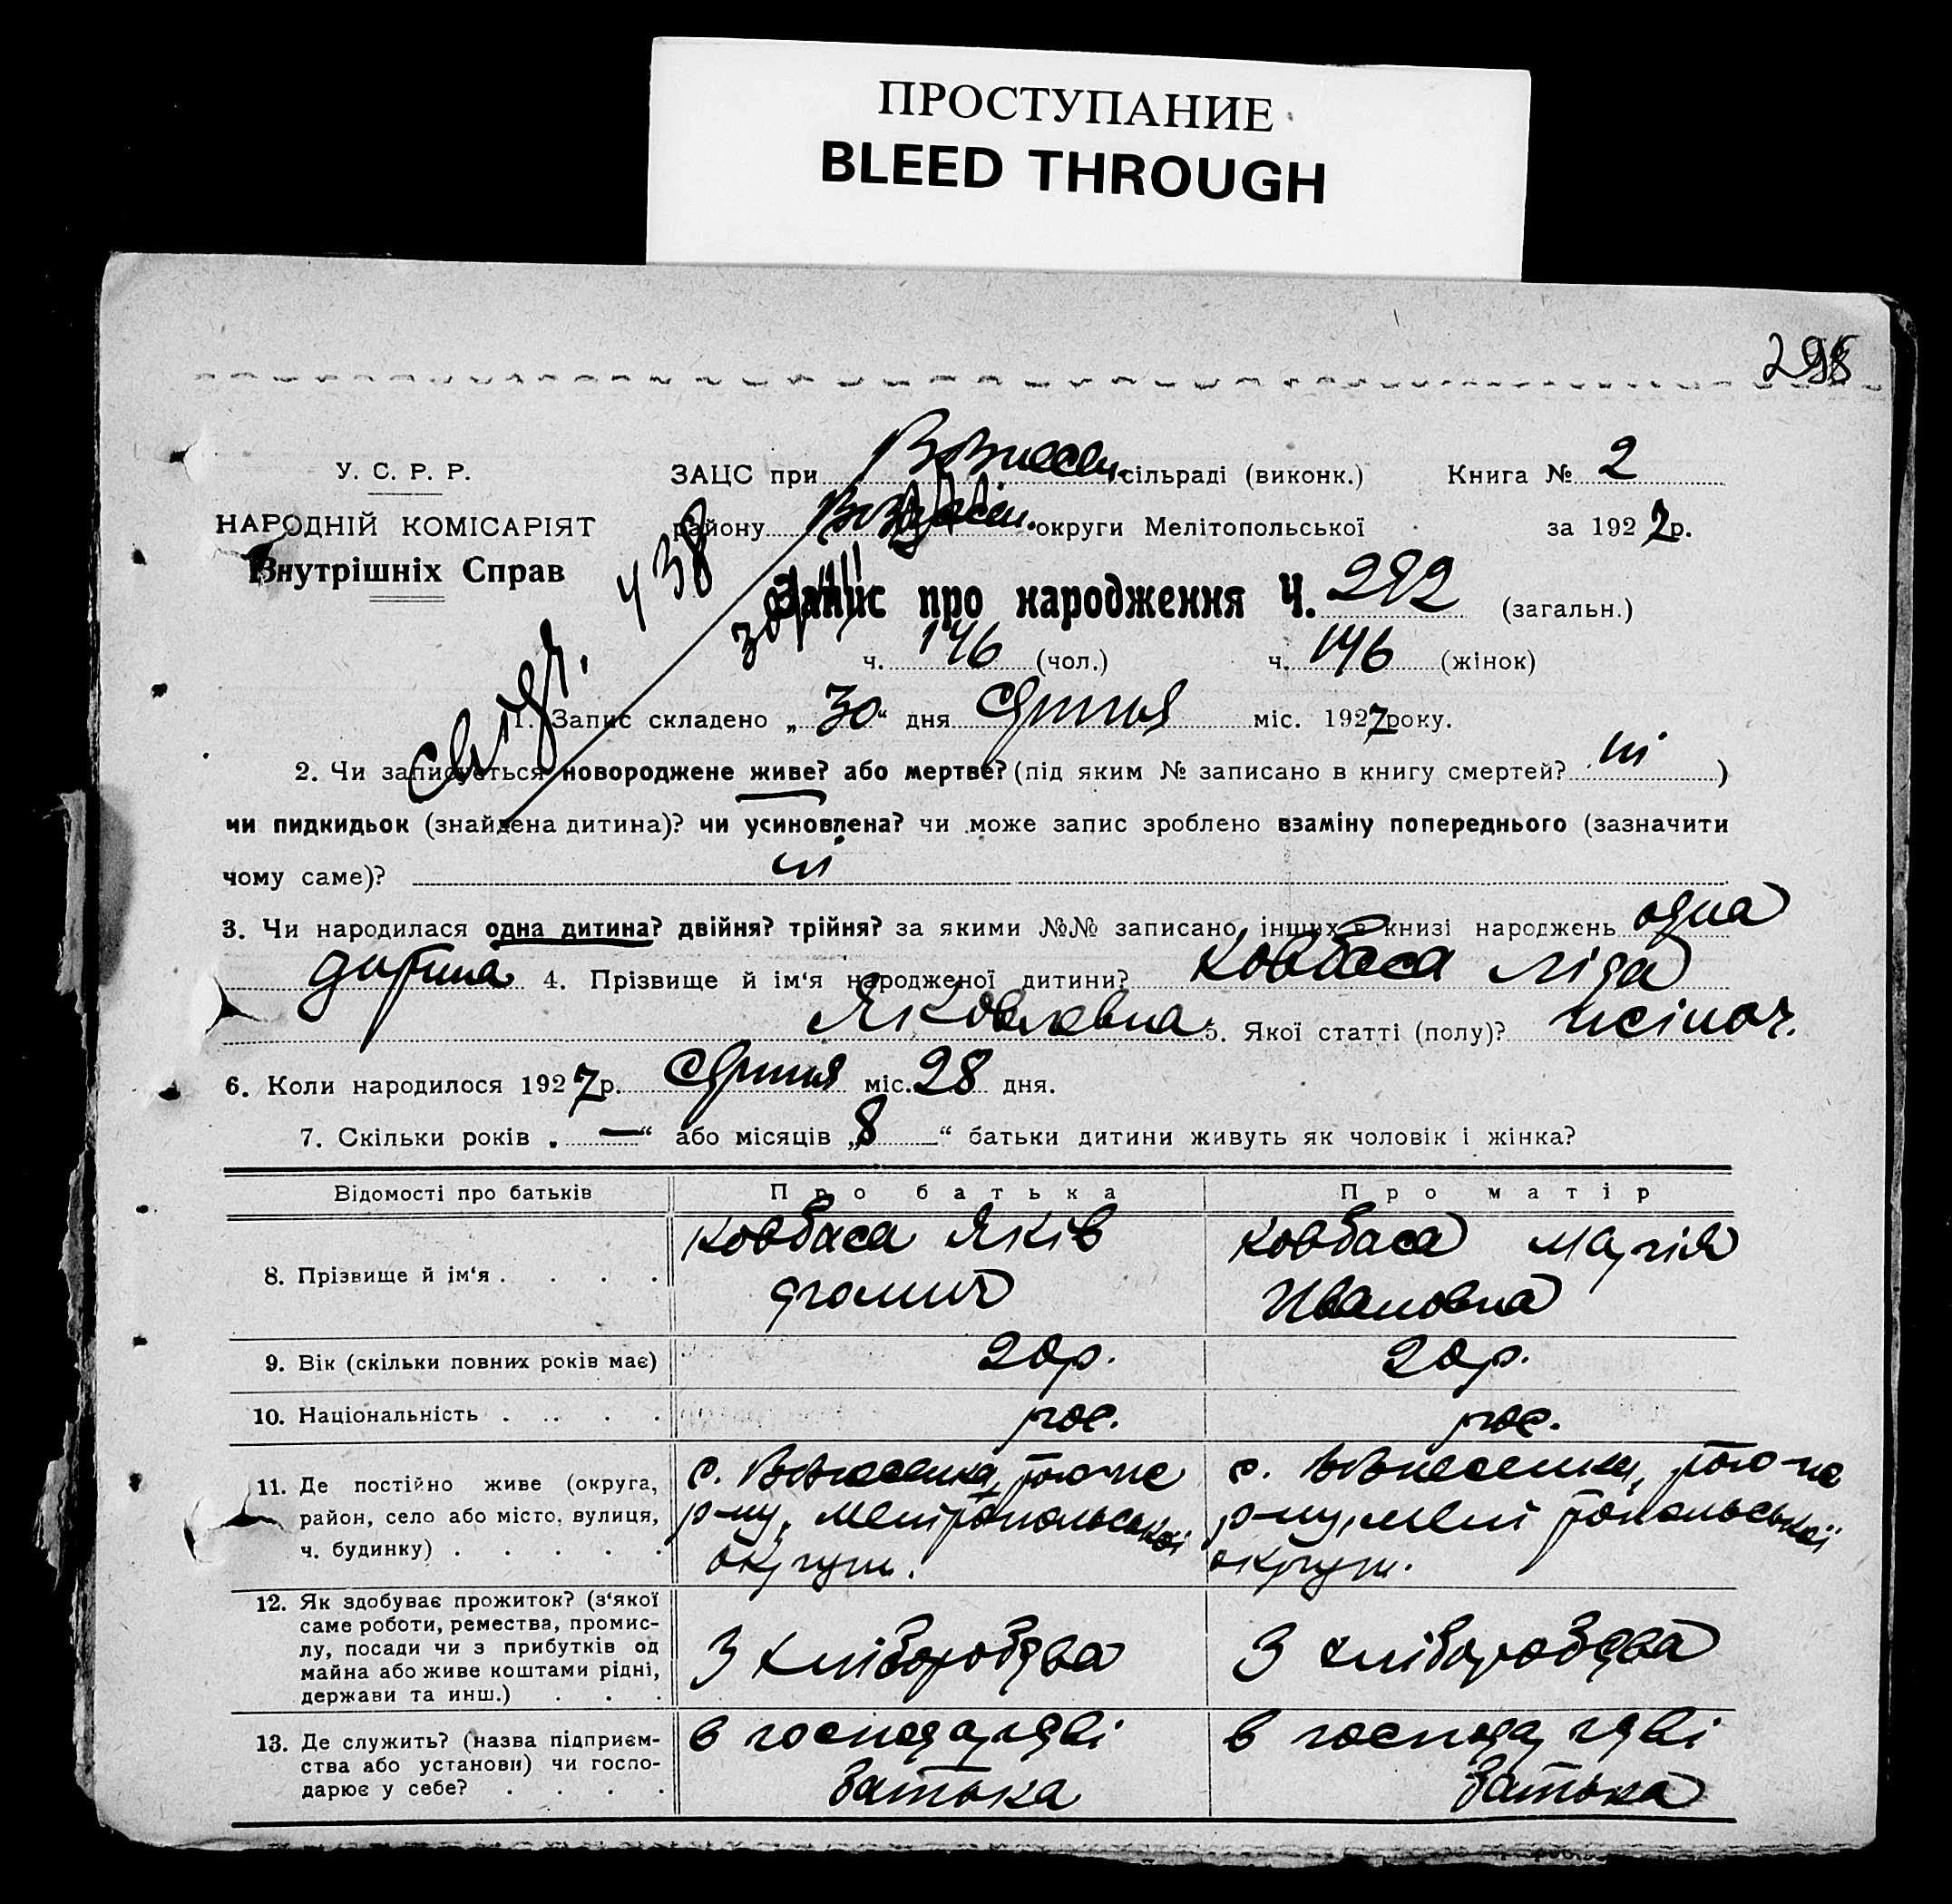 ПРОСТУПАНИЕ
BLEED THROUGH
У. С. Р. Р.
НАРОДНІЙ КОМІСАРІЯТ
Внутрішніх Справ
ЗАЦС при сільраді (виконк.) Книга № 2
району округи Мелітопольської за 1927 р.
438
Запис про народження Ч. 292 (загальн.)
ч. 146 (чол.) ч. 146 (жінок)
1. Запис складено „30“ дня Серпня міс. 1927 року.
2. Чи записується новороджене живе? або мертве? (під яким № записано в книгу смертей? ні )
чи пидкидьок (знайдена дитина)? чи усиновлена? чи може запис зроблено взаміну попереднього (зазначити
чому саме)? ні
3. Чи народилася одна дитина? двійня? трійня? за якими №№ записано інших в книзі народжень одна
дитина 4. Прізвище й ім‘я народженої дитини? Ковбаса Ліда
Яковлевна 5. Якої статті (полу)? жіноч.
6. Коли народилося 1927 р. Серпня міс. 28 дня.
7. Скільки років „ — “ або місяців „8“ батьки дитини живуть як чоловік і жінка?
Відомості про батьків Про батька Про матір
8. Прізвище й ім‘я . . . . Ковбаса Яків Ковбаса Марія
Ивановна
9. Вік (скільки повних років має) 20 р. 20 р.
10. Національність . . . . рос. рос.
11. Де постійно живе (округа, район, село або місто, вулиця, ч. будинку) . . . . .
с. Вознесенка,
р-ну, Мелітопольської
округи.
с. Вознесенка,
р-ну, Мелітопольської
округи.
12. Як здобуває прожиток? (з‘якої саме роботи, ремества, промислу, посади чи з прибутків од майна або живе коштами рідні, держави та инш.) . . .
З хліборобства З хліборобства
13. Де служить? (назва підприємства або установи) чи господарює у себе? . . . .
в господарстві в господарстві
батька батька